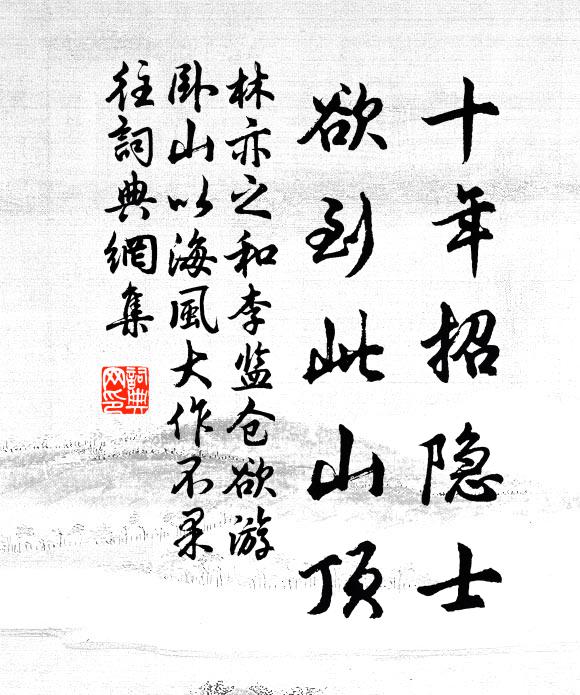 十年招隐士
欲到此山顶
林亦之和李监仓欲游
卧山以海风大作不果
往詞典網集
詞典
网印